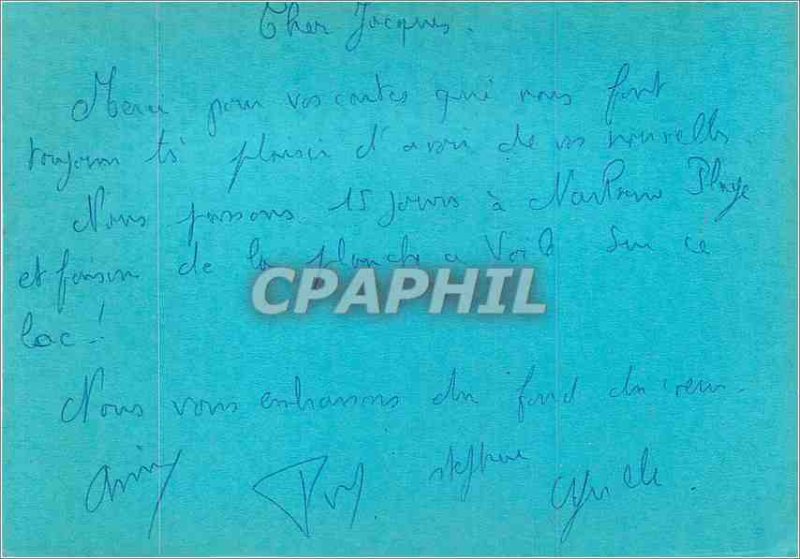 Cher Jacques.
Merci pour vos cartes qui nous font
toujours plaisir d'avoir de vos nouvelles
Nous passons 15 jours à Narbonne Plage
et faison de la planche a Voile sur ce
lac !
CPAPHIL
Nous vous embrassons du fond du coeur.
stephane